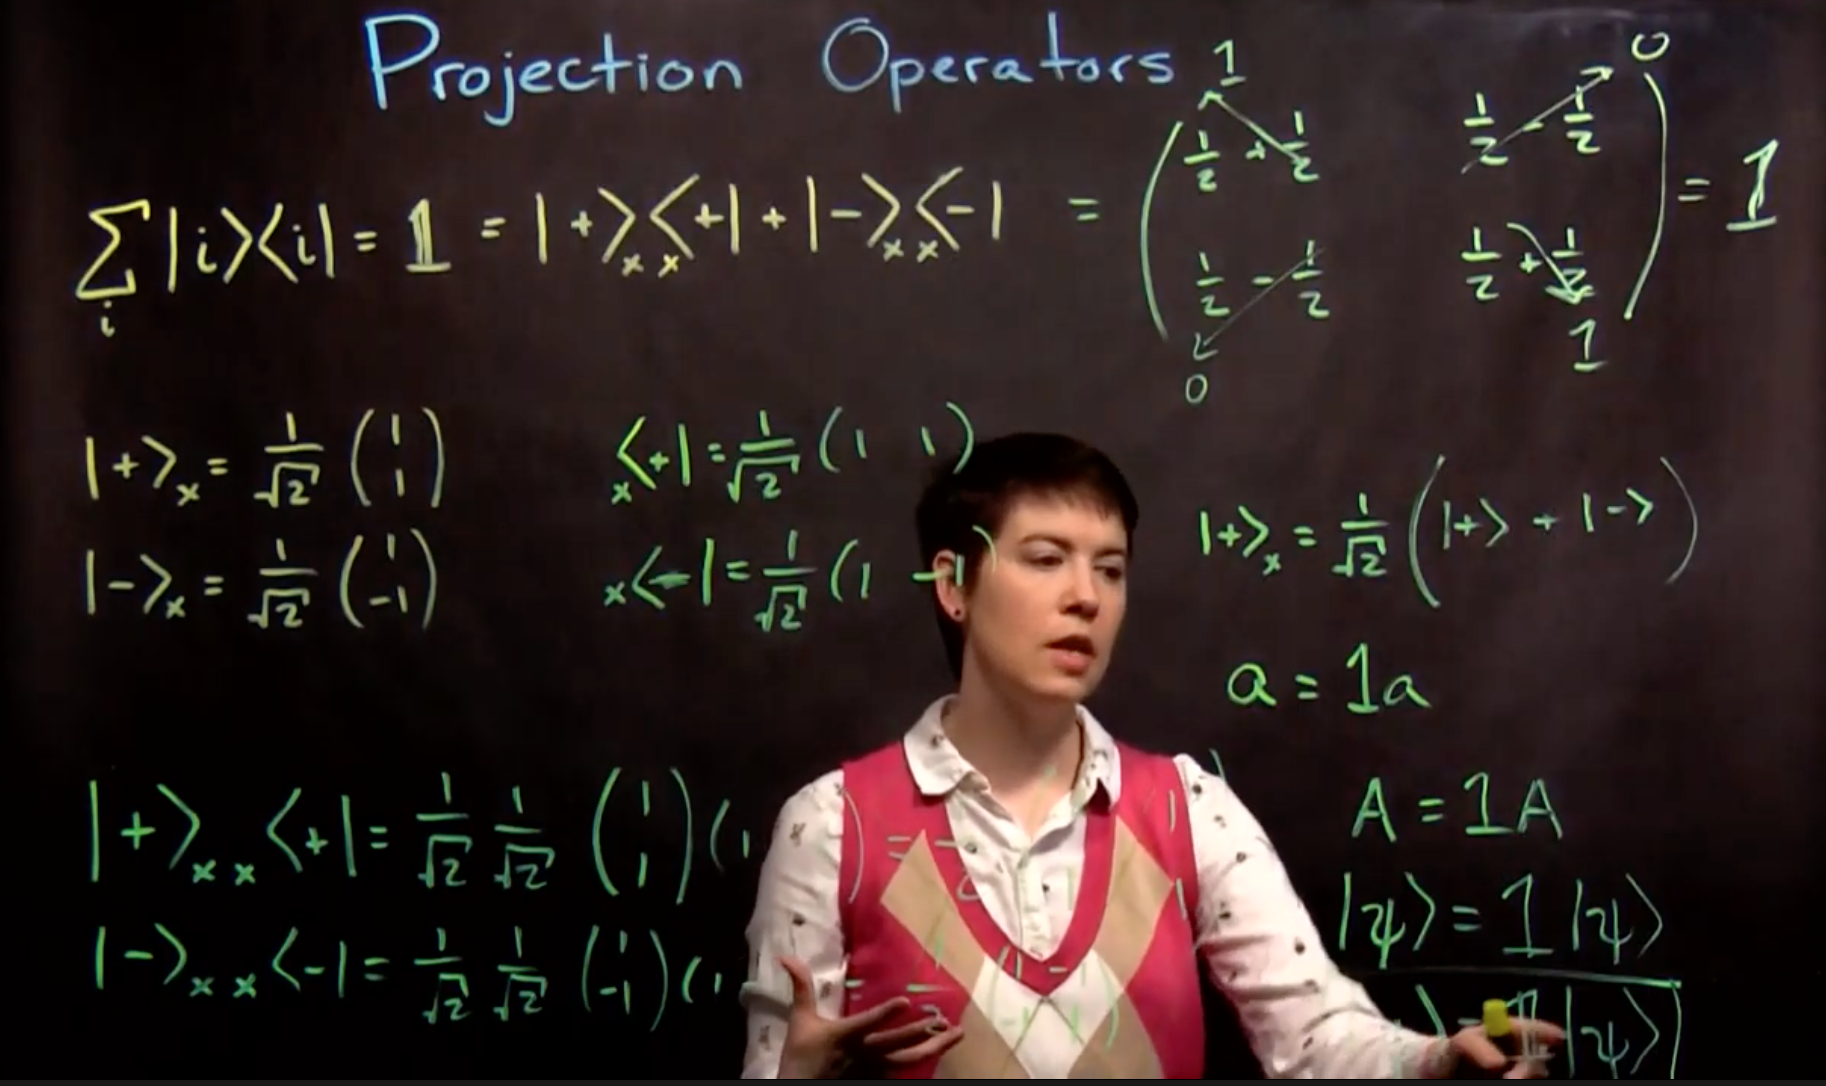 Projection Operators
∑_i |i⟩⟨i| = 𝟙 = |+⟩ₓ ₓ⟨+| + |−⟩ₓ ₓ⟨−| = ( 1/2 + 1/2 → 1   1/2 − 1/2 → 0
1/2 − 1/2 → 0   1/2 + 1/2 → 1 ) = 𝟙
|+⟩ₓ = 1/√2 (1 1)
ₓ⟨+| = 1/√2 (1 1)
|−⟩ₓ = 1/√2 (1 −1)
ₓ⟨−| = 1/√2 (1 −1)
|+⟩ₓ = 1/√2 (|+⟩ + |−⟩)
a = 1a
A = 1A
|ψ⟩ = 1|ψ⟩
⟩ = 𝟙|ψ⟩
|+⟩ₓ ₓ⟨+| = 1/√2 1/√2 (1 1)(1 ) =
|−⟩ₓ ₓ⟨−| = 1/√2 1/√2 (1 −1)(1 = 1/2 (1 −1 −1 1)